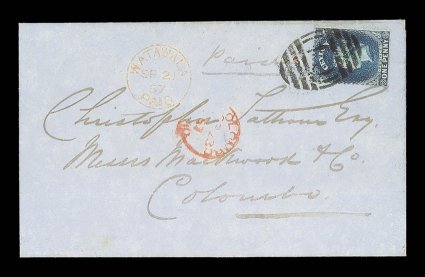 WATAWALA
SP 21
57
PAID
Paid
ONE PENNY
COLOMBO
Christopher Tatham Esq.
Messrs Mackwood & Co.
Colombo